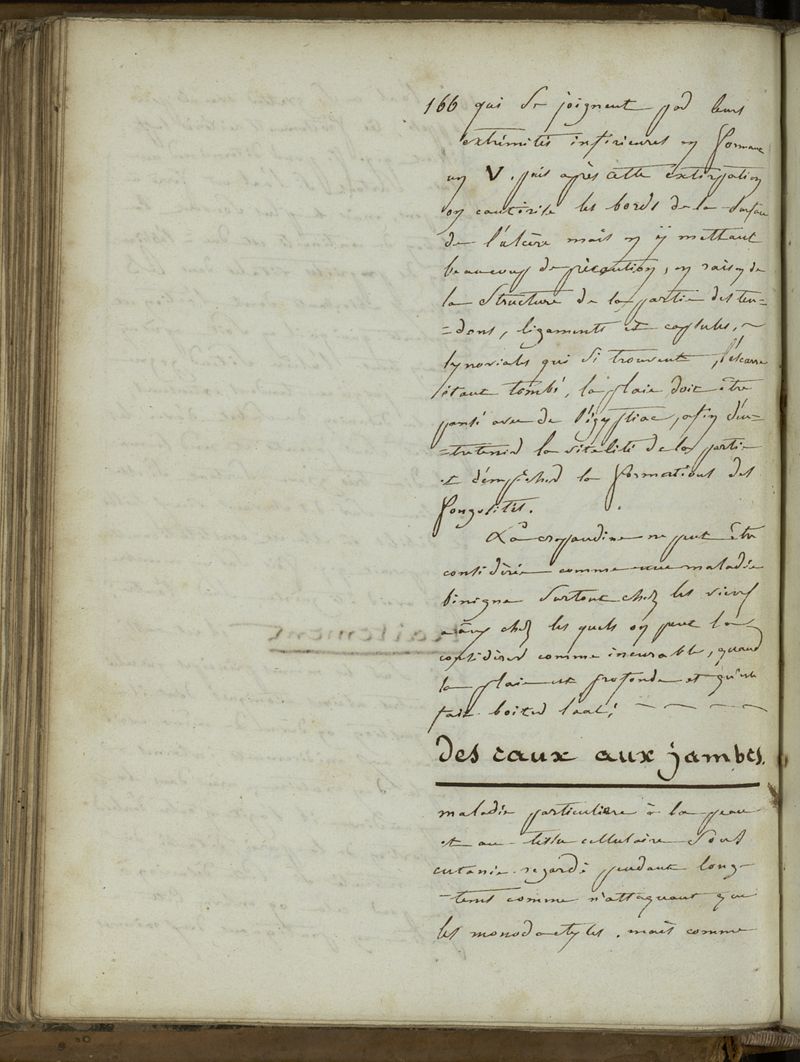 166 qui se joignent par leurs
extrémités inférieures en formant
un V. puis après cette extirpation
on cautérise les bords de la surface
de l'ulcère mais en ÿ mettant
beaucoup de précaution, en raison de
la structure de la partie des ten=
=dons, ligaments et capsules,
synoviales qui si trouvent, l'escarre
étant tombé, la plaie doit être
pansé avec de l'égyptiac, afin d'en=
=tretenir la vitalité de la partie
et d'émpêcher la formations des
fongosités.
La crapaudine ne peut être
considérée comme une maladie
bénigne surtout chez les vieux
anes chez les quels on peut la
considérer comme incurable, quand
la plaie est profonde et qu'elle
fait boiter l'ani;
des eaux aux jambes.
maladie particulière à la peau
et au tissu cellulaire sous
cutanie. regardé pendant long-
-tems comme n'attaquant que
les monodactyles. mais comme
traitement